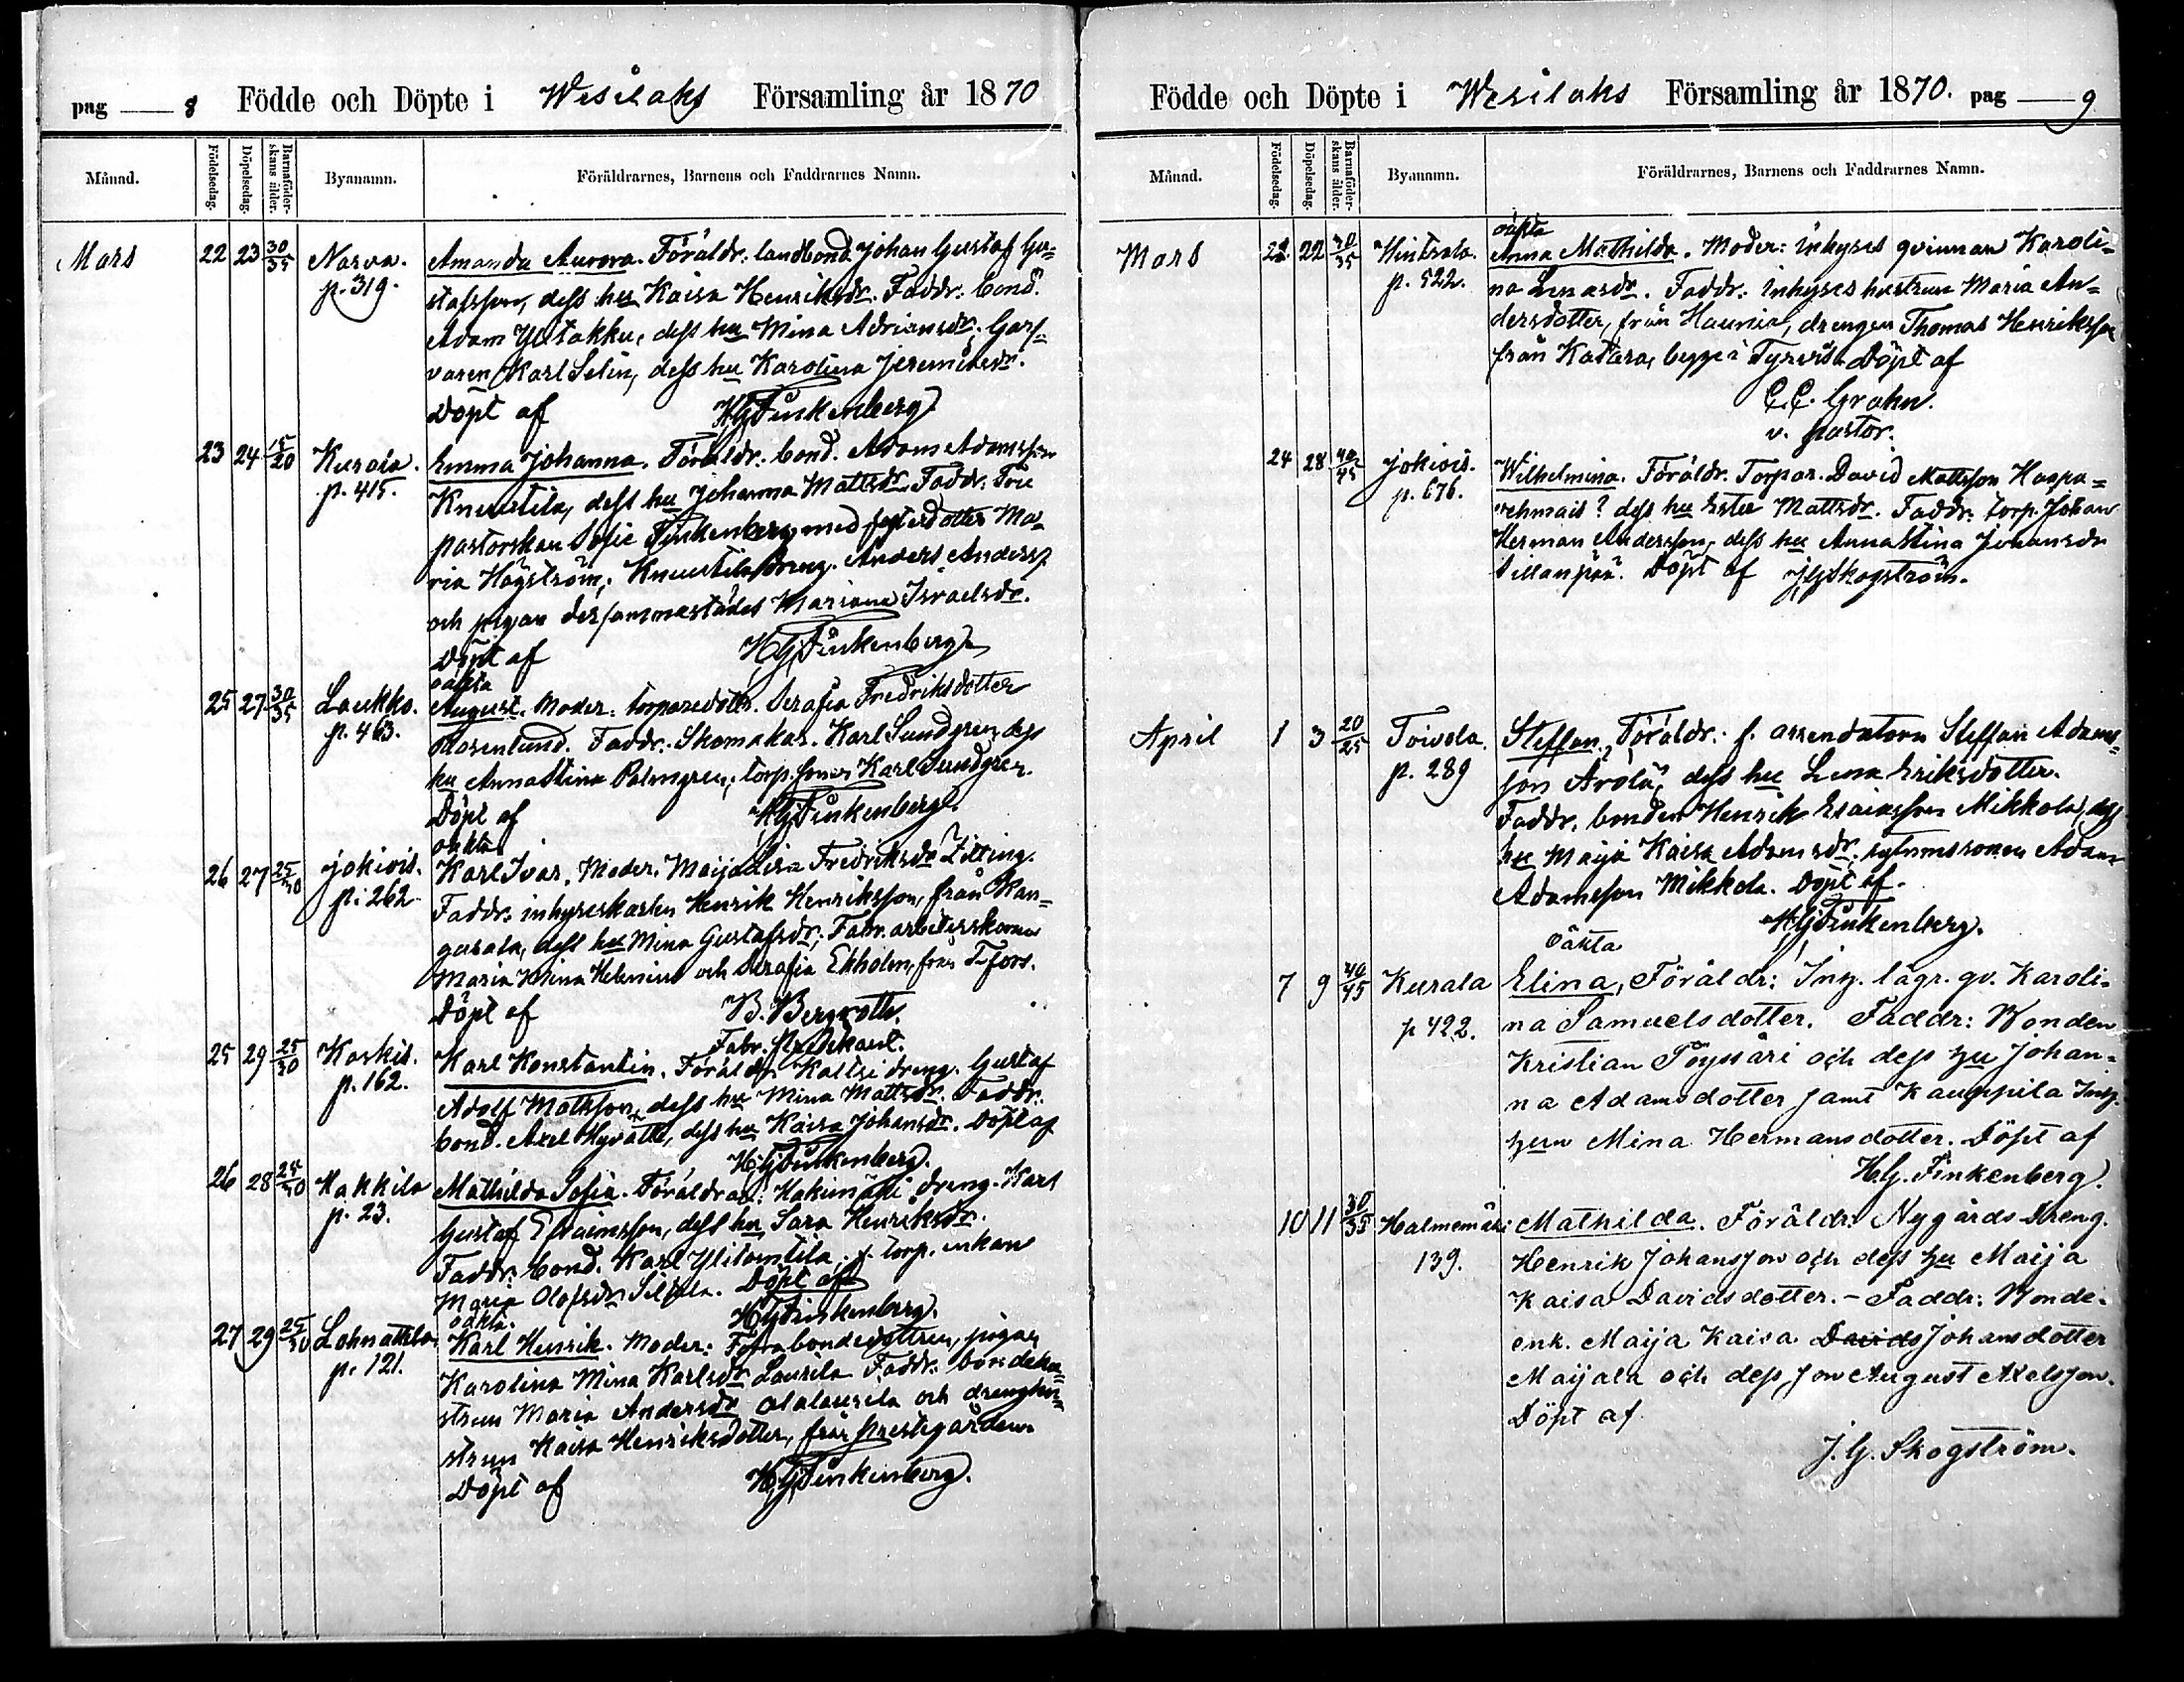 pag 8 Födde och Döpte i Wesilaks Församling år 1870
Månad. Födelsedag. Döpelsedag. Barnaföderskans ålder. Byanamn. Föräldrarnes, Barnens och Faddrarnes Namn.
Mars 22 23 30/35 Narva. p. 319. Amanda Aurora. Föräldr. landbond. Johan Gustaf Gu=
stafsson, dess hu Kaisa Henriksdr. Faddr. bond.
Adam Ylitakku, dess hu Mina Adriansdr, Garf=
varen Karl Selin, dess hu Karolina Jeremiasdr.
Döpt af HGFinkenberg
23 24 15/20 Kurala. p. 415. Emma Johanna. Föräldr. bond. Adam Adamsson
Knuutila, dess hu Johanna Mattsdr. Faddr.
pastorskan Sofie Finkenberg med Ma=
ria Högström; Knuutila dreng. Anders Anderss.
och pigan dersammastädes Mariana Israelsdr.
Döpt af HGFinkenberg
oäkta
25 27 30/35 Laukko. p. 463. August. Moder: torparedottr. Serafia Fredriksdotter
Rosenlund. Faddr. Skomakar. Karl Sundgren, dess
hu Anna Stina Palmgren, torp. sonen Karl Sundgren.
Döpt af HGFinkenberg.
oäkta
26 27 25/30 Jokiois. p. 262 Karl Ivar. Moder. Maija Lisa Fredriksdr
Faddr. inhyseskarlen Henrik Henriksson, från Kan=
gasala, dess hu Mina Gustafsdr; Fabr. arbeterskorna
Maria Mina Helenius och Serafia Ekholm, från T-fors.
Döpt af B. Bergroth.
Fabr. Predikant.
25 29 25/30 Koskis. p. 162. Karl Konstantin. Föräldr. Kaltsi dreng. Gustaf
Adolf Mattsson, dess hu Mina Mattsdr. Faddr.
bond. Axel Hyvätti, dess hu Kaisa Johansdr. Döpt af
HGFinkenberg.
26 28 25/30 Hakkila p. 23. Mathilda Sofia. Föräldrar: dreng. Karl
Gustaf Efraimsson, dess hu Sara Henriksdr.
Faddr. bond. Karl f. torp. enkan
Maria Olofsdr Döpt af
HGFinkenberg.
oäkta.
27 29 25/30 p. 121. Karl Henrik. Moder: bondedottren, pigan
Karolina Mina Karlsdr Laurila. Faddr. bondehu=
strun Maria Andersdr Alalaurila och drenghu
strun Kaisa Henriksdotter, från Prestegården
Döpt af HGFinkenberg.
Födde och Döpte i Wesilaks Församling år 1870. pag 9
Månad. Födelsedag. Döpelsedag. Barnaföderskans ålder. Byanamn. Föräldrarnes, Barnens och Faddrarnes Namn.
oäkta
Mars 21 22 30/35 Hintsala. p. 522. Anna Mathilda. Moder: inhyses qvinnan Karoli=
na Lenasdr. Faddr. inhyses hustrun Maria An=
dersdotter, från Haunia, drengen Thomas Henriksson
från Katara, begge i Tyrvis. Döpt af
C.E. Grahn.
v. pastor.
24 28 40/45 Jokiois. p. 676. Wilhelmina. Föräldr. Torpar. David Mattsson Haapa=
? dess hu Ester Mattsdr. Faddr. torp. Johan
Herman Andersson, dess hu Anna Stina Johansdr
Sillanpää. Döpt af JGSkogström.
April 1 3 20/25 Toivola. p. 289 Steffan. Föräldr. f. arrendatorn Steffan Adams=
son Arola, dess hu Lena Eriksdotter.
Faddr. bonden Henrik Esaiasson Mikkola, dess
hu Maija Kaisa Adamsdr. sytnmssonen Adam
Adamsson Mikkola. Döpt af
HGFinkenberg.
oäkta
7 9 40/45 Kurala p 422. Elina, Föräldr: Iny. lägr. qv. Karoli-
na Samuelsdotter. Faddr: Bonden
Kristian Töyssäri och dess hu Johan-
na Adamsdotter samt Kauppila Iny.
hun Mina Hermansdotter. Döpt af
H.G. Finkenberg.
10 11 30/35 Halmemäki 139. Mathilda. Föräldr: Nygårds Dreng.
Henrik Johansson och dess hu Maija
Kaisa Davidsdotter. - Faddr: Bonde-
enk. Maija Kaisa Davids Johansdotter
Maijala och dess son August Axelsson.
Döpt af
J.G. Skogström.